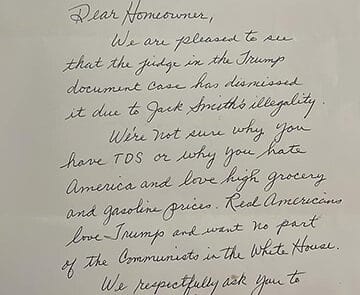 Dear Homeowner,
We are pleased to see
that the judge in the Trump
document case has dismissed
it due to Jack Smith's illegality.
We're not sure why you
have TDS or why you hate
America and love high grocery
and gasoline prices. Real Americans
love Trump and want no part
of the Communists in the White House.
We respectfully ask you to